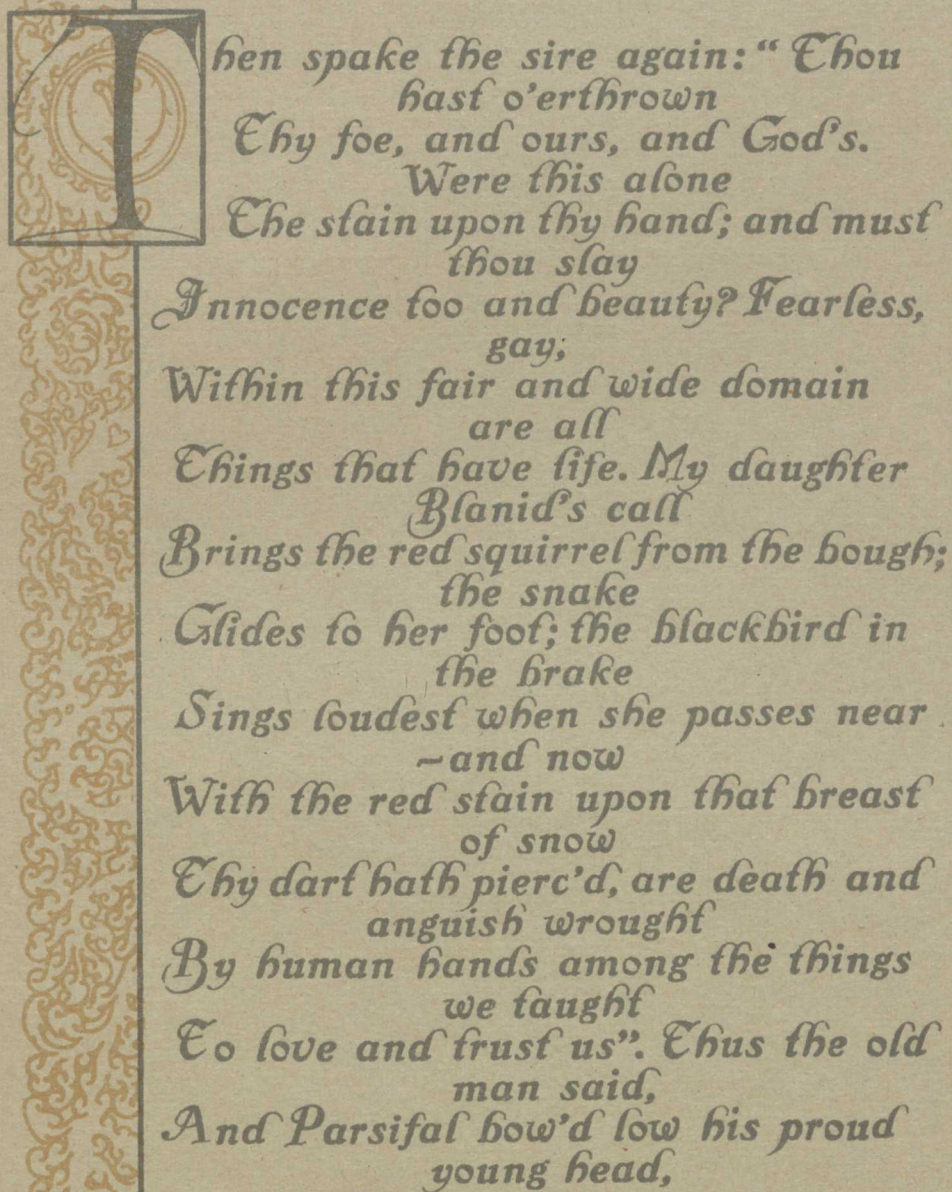 Then spake the sire again: "Thou
hast o'erthrown
Thy foe, and ours, and God's.
Were this alone
The stain upon thy hand; and must
thou slay
Innocence too and beauty? Fearless,
gay,
Within this fair and wide domain
are all
Things that have life. My daughter
Blanid's call
Brings the red squirrel from the bough;
the snake
Glides to her foot; the blackbird in
the brake
Sings loudest when she passes near
–and now
With the red stain upon that breast
of snow
Thy dart hath pierc'd, are death and
anguish wrought
By human hands among the things
we taught
To love and trust us". Thus the old
man said,
And Parsifal bow'd low his proud
young head,